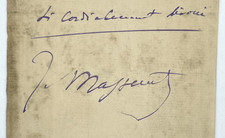 si cordialement dévoué
J. Massenet